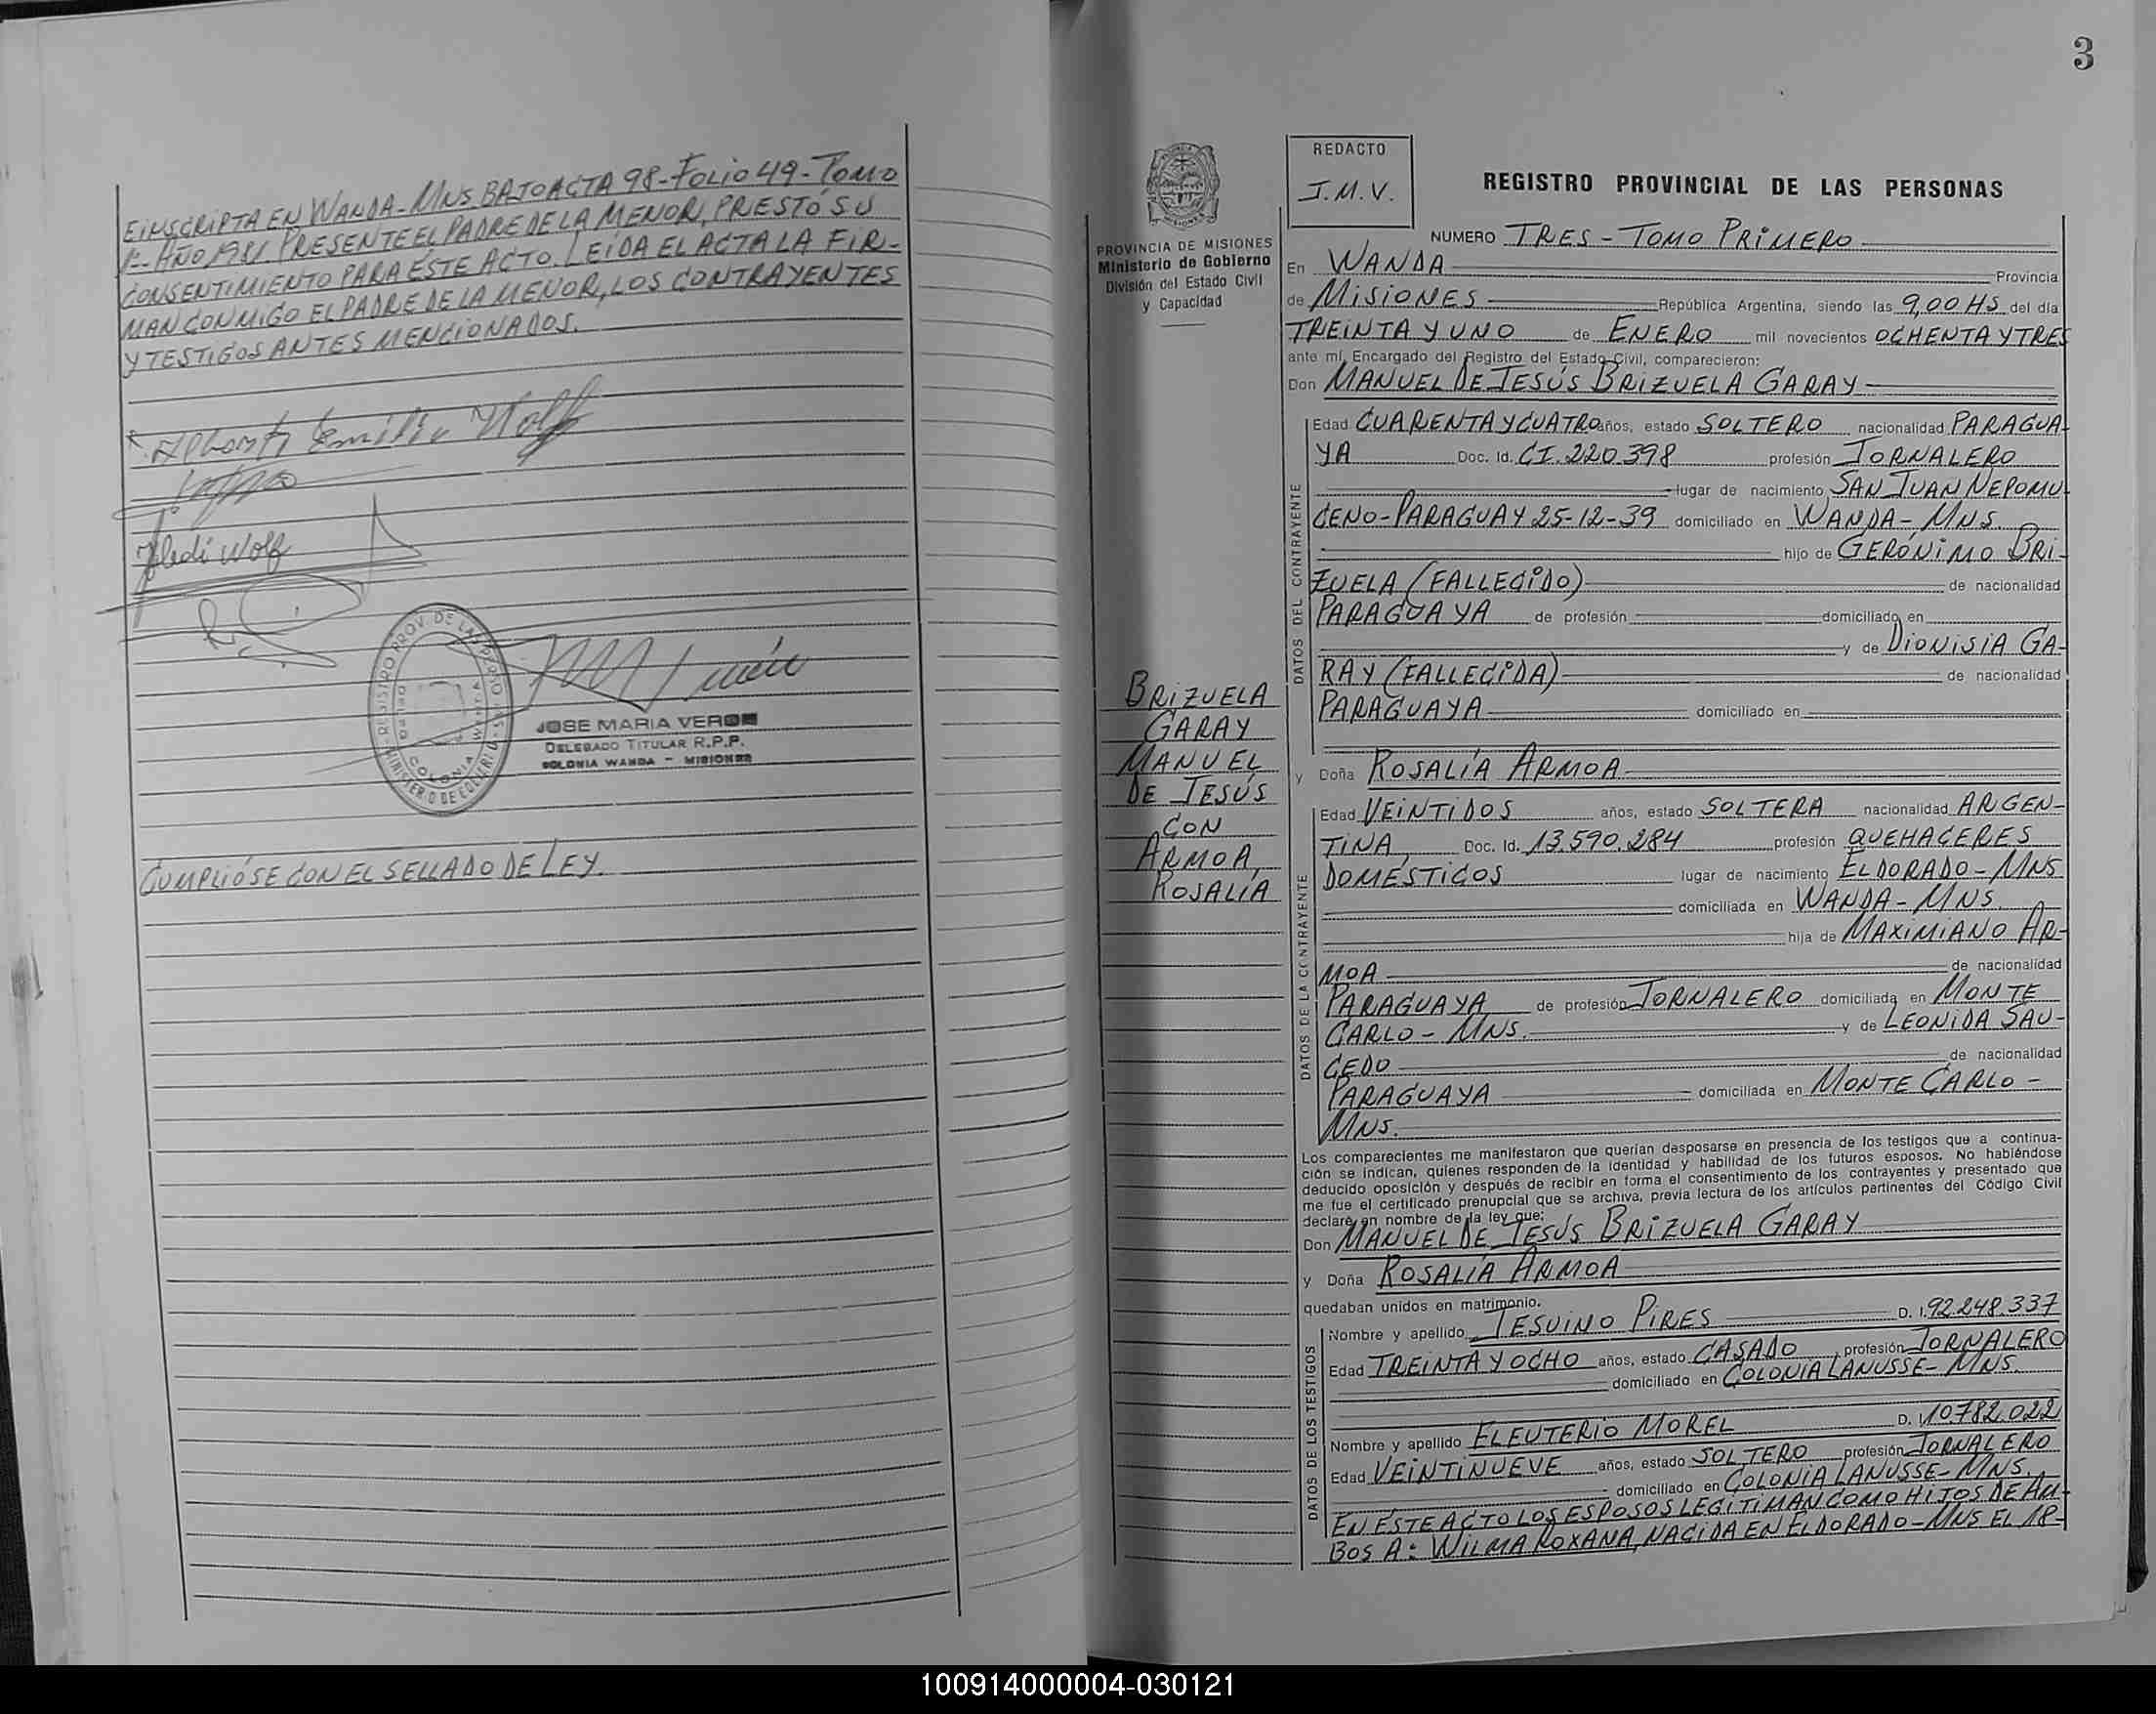 E INSCRIPTA EN WANDA-MNS BAJO ACTA 98-FOLIO 49-TOMO
1º-AÑO 1981. PRESENTE EL PADRE DE LA MENOR, PRESTÓ SU
CONSENTIMIENTO PARA ÉSTE ACTO. LEIDA EL ACTA LA FIR-
MAN CONMIGO EL PADRE DE LA MENOR, LOS CONTRAYENTES
Y TESTIGOS ANTES MENCIONADOS.
Emilio Wolf
Wolf
JOSE MARIA VERON
DELEGADO TITULAR R.P.P.
COLONIA WANDA - MISIONES
CUMPLIÓSE CON EL SELLADO DE LEY.
3
PROVINCIA DE MISIONES
Ministerio de Gobierno
División del Estado Civil
y Capacidad
BRIZUELA
GARAY
MANUEL
DE JESÚS
CON
ARMOA,
ROSALÍA
REDACTO
J.M.V.
REGISTRO PROVINCIAL DE LAS PERSONAS
NUMERO TRES - TOMO PRIMERO
En WANDA Provincia
de MISIONES República Argentina, siendo las 9,00 HS del día
TREINTA Y UNO de ENERO mil novecientos OCHENTA Y TRES
ante mí, Encargado del Registro del Estado Civil, comparecieron:
Don MANUEL DE JESÚS BRIZUELA GARAY
DATOS DEL CONTRAYENTE
Edad CUARENTA Y CUATRO años, estado SOLTERO nacionalidad PARAGUA-
YA Doc. Id. CI.220.398 profesión JORNALERO
lugar de nacimiento SAN JUAN NEPOMU-
CENO-PARAGUAY 25-12-39 domiciliado en WANDA-MNS.
hijo de GERÓNIMO BRI-
ZUELA (FALLECIDO) de nacionalidad
PARAGUAYA de profesión domiciliado en
y de DIONISIA GA-
RAY (FALLECIDA) de nacionalidad
PARAGUAYA domiciliado en
y Doña ROSALÍA ARMOA
DATOS DE LA CONTRAYENTE
Edad VEINTIDOS años, estado SOLTERA nacionalidad ARGEN-
TINA Doc. Id. 13.590.284 profesión QUEHACERES
DOMÉSTICOS lugar de nacimiento ELDORADO-MNS
domiciliada en WANDA-MNS.
hija de MAXIMIANO AR-
MOA de nacionalidad
PARAGUAYA de profesión JORNALERO domiciliada en MONTE
CARLO-MNS. y de LEONIDA SAU-
CEDO de nacionalidad
PARAGUAYA domiciliada en MONTE CARLO-
MNS.
Los comparecientes me manifestaron que querían desposarse en presencia de los testigos que a continua-
ción se indican, quienes responden de la identidad y habilidad de los futuros esposos. No habiéndose
deducido oposición y después de recibir en forma el consentimiento de los contrayentes y presentado que
me fue el certificado prenupcial que se archiva, previa lectura de los artículos pertinentes del Código Civil
declaré en nombre de la ley que:
Don MANUEL DE JESÚS BRIZUELA GARAY
y Doña ROSALÍA ARMOA
quedaban unidos en matrimonio.
DATOS DE LOS TESTIGOS
Nombre y apellido JESUINO PIRES D. I. 92.248.337
Edad TREINTA Y OCHO años, estado CASADO profesión JORNALERO
domiciliado en COLONIA LANUSSE-MNS.
Nombre y apellido ELEUTERIO MOREL D. I. 10.782.022
Edad VEINTINUEVE años, estado SOLTERO profesión JORNALERO
domiciliado en COLONIA LANUSSE-MNS.
EN ÉSTE ACTO LOS ESPOSOS LEGITIMAN COMO HIJOS DE AM-
BOS A: WILMA ROXANA, NACIDA EN ELDORADO-MNS EL 18-
100914000004-030121